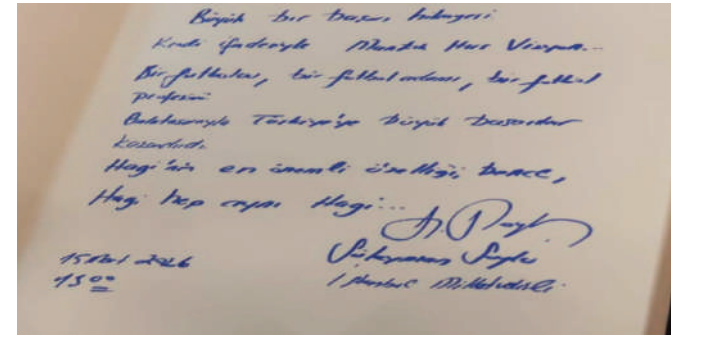 Büyük bir başarı hikayesi
Kendi ifadesiyle Mantık Hırs Vizyon...
Bir futbolcu, bir futbol adamı, bir futbol
profesörü
Galatasarayla Türkiye'ye büyük başarılar
kazandırdı.
Hagi'nin en önemli özelliği, bence,
Hagi hep aynı Hagi...
Süleyman Soylu
15 2026
İstanbul Milletvekili
15 00